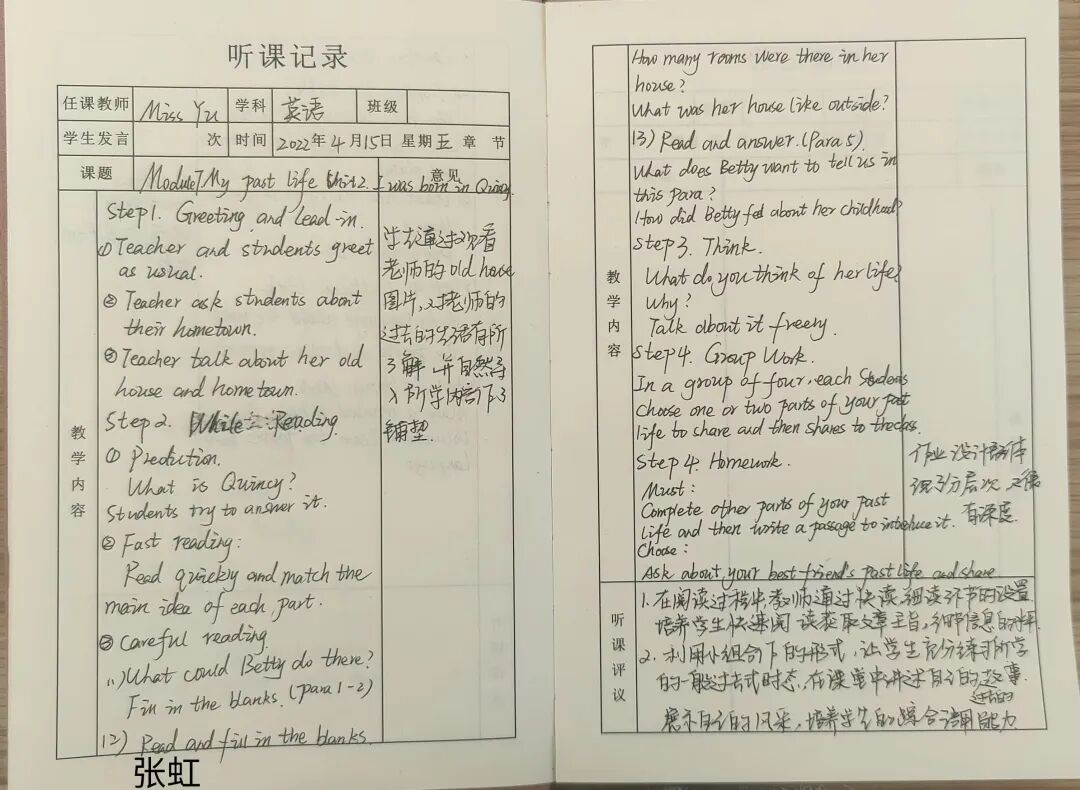 听课记录
任课教师 Miss Yu 学科 英语 班级
学生发言 次 时间 2022年4月15日 星期五 章 节
课题 Module7 My past life Unit2. I was born in Quincy.
意见
教学内容
Step1. Greeting and lead-in.
① Teacher and students greet
as usual.
② Teacher ask students about
their hometown.
③ Teacher talk about her old
house and hometown.
Step2. While Reading
① Prediction.
What is Quincy?
Students try to answer it.
② Fast reading:
Read quickly and match the
main idea of each part.
③ Careful reading
(1) What could Betty do there?
Fill in the blanks. (para 1-2)
(2) Read and fill in the blanks.
学生通过观看
老师的old house
图片,对老师的
过去的生活有所
了解,并自然导
入所学内容作了
铺垫.
张虹
教学内容
How many rooms were there in her
house?
What was her house like outside?
(3) Read and answer. (Para 5)
What does Betty want to tell us in
this para?
How did Betty feel about her childhood?
Step3. Think.
What do you think of her life?
Why?
Talk about it freely.
Step4. Group Work.
In a group of four, each students
choose one or two parts of your past
life to share and then shares to the class.
Step4. Homework.
Must:
Complete other parts of your past
life and then write a passage to introduce it.
Choose:
Ask about your best friend's past life and share
作业设计
分层次 又很
有深度.
听课评议
1. 在阅读过程中,教师通过快读,细读环节的设置
培养学生快速阅读获取文章主旨,细节信息的
2. 利用小组合作的形式,让学生充分练习所学
的一般过去式时态,在课堂中讲述自己的过去的故事.
展示自己的风采,培养学生的综合语用能力.